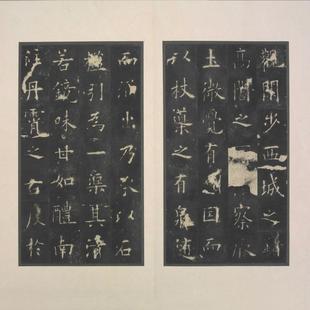 觀閑步西城之
高閣之察厥
土微覺有因而
以杖導之有泉隨
而涌出乃承以石
檻引為一渠其清
若鏡味甘如醴南
注丹霄之右度於